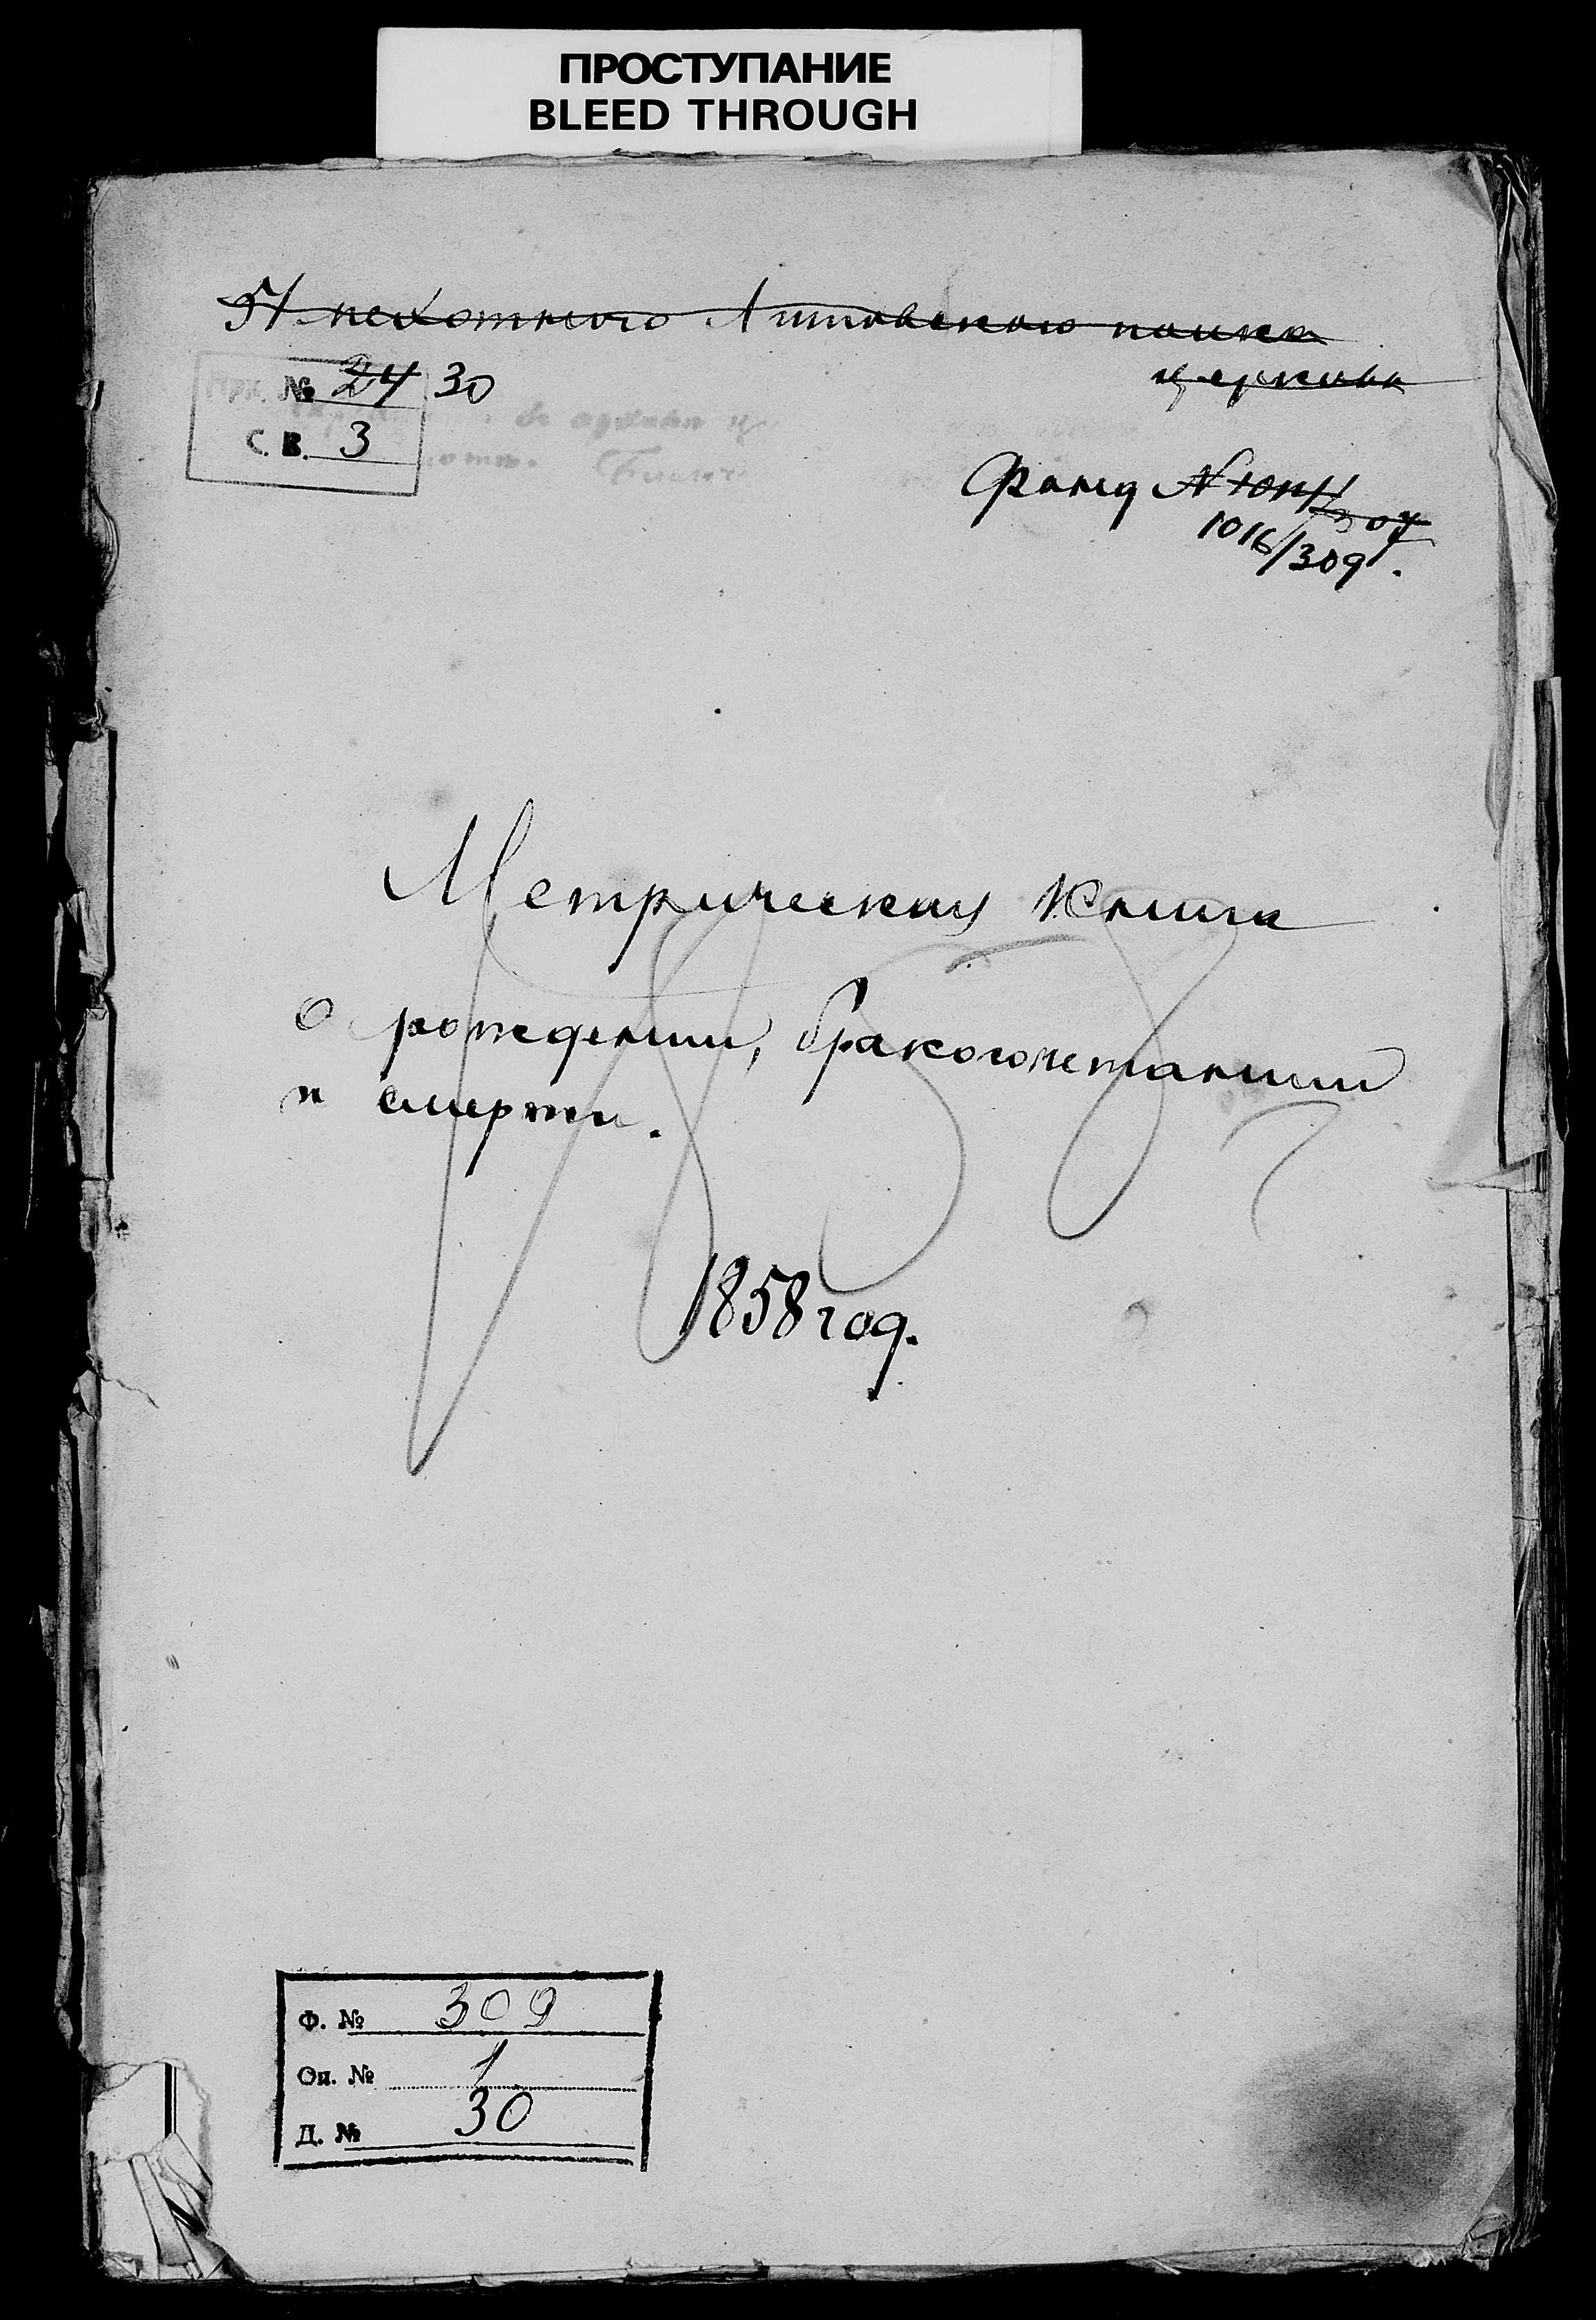 ПРОСТУПАНИЕ
BLEED THROUGH
51 пехотного Литовского полка
церковь
№ 24 30
С. В. 3
Фонд №
1016/309.
Метрическая Книга
о рождении, бракосочетании
и смерти.
1858 год.
Ф. № 309
Оп. № 1
Д. № 30